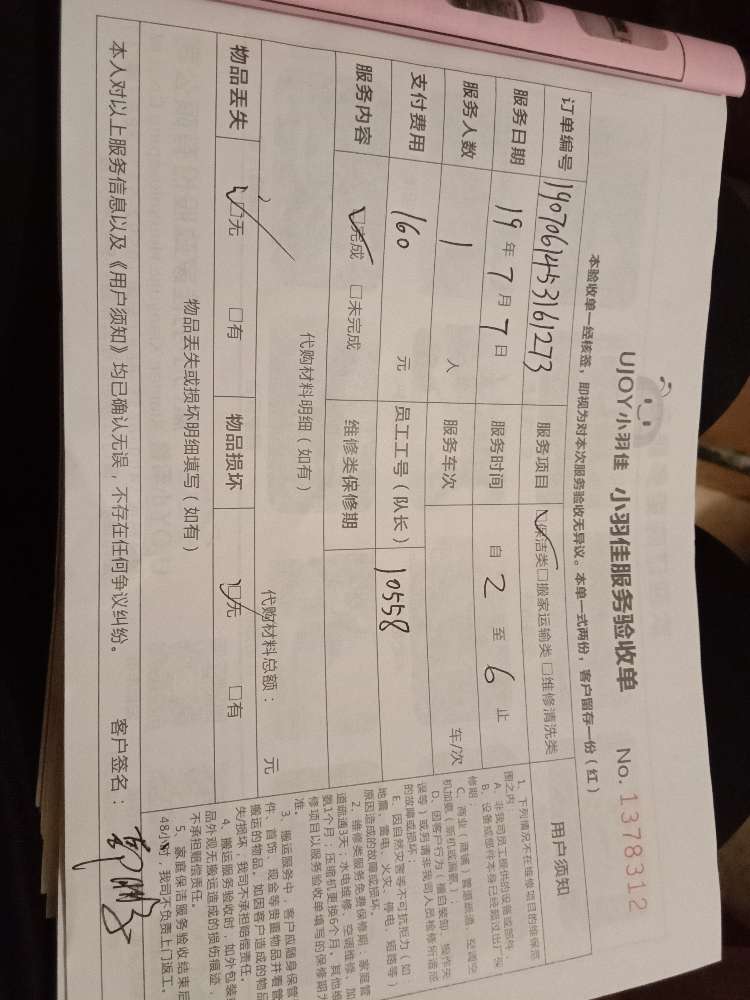 UJOY小羽佳 小羽佳服务验收单 No. 1378312
本验收单一经核签，即视为对本次服务验收无异议。本单一式两份，客户留存一份（红）
订单编号 1907061453161273 服务项目 □保洁类□搬家运输类□维修清洗类
服务日期 19 年 7 月 7 日 服务时间 自 2 至 6 止
服务人数 1 人 服务车次 车/次
支付费用 160 元 员工工号（队长） 10558
服务内容 □完成 □未完成 维修类保修期
代购材料明细（如有） 代购材料总额： 元
物品丢失 □无 □有 物品损坏 □无 □有
物品丢失或损坏明细填写（如有）
本人对以上服务信息以及《用户须知》均已确认无误，不存在任何争议纠纷。 客户签名：
用户须知
1、下列情况不在维修项目的维保范
围之内：
A、非我司员工提供的设备或部件
B、设备或部件本身已经超过出厂保
修期
C、商业（商铺）管道疏通、空调空
机加氨（新机或漏氨）；
D、因客户行为（擅自装卸、操作失
误等）或另请非我司人员检修所造成
的故障或损坏；
E、因自然灾害等不可抗拒力（如：
地震、雷电、火灾、停电、短路等）
原因造成的故障或损坏。
2、维修类服务免费保修期：家庭管
道疏通3天；水电维修、空调维修、加
氨1个月；压缩机更换6个月，其他维
修项目以服务验收单填写的保修期为
准。
3、搬运服务中，客户应随身保管
件、首饰、现金等贵重物品并看管
搬运的物品。如因客户造成的物品
失/损坏，我司不承担赔偿责任。
4、搬运服务验收时，如外包装
品外观无搬运造成的损伤痕迹，
不承担赔偿责任。
5、家庭保洁服务验收结束后
48小时，我司不负责上门返工。